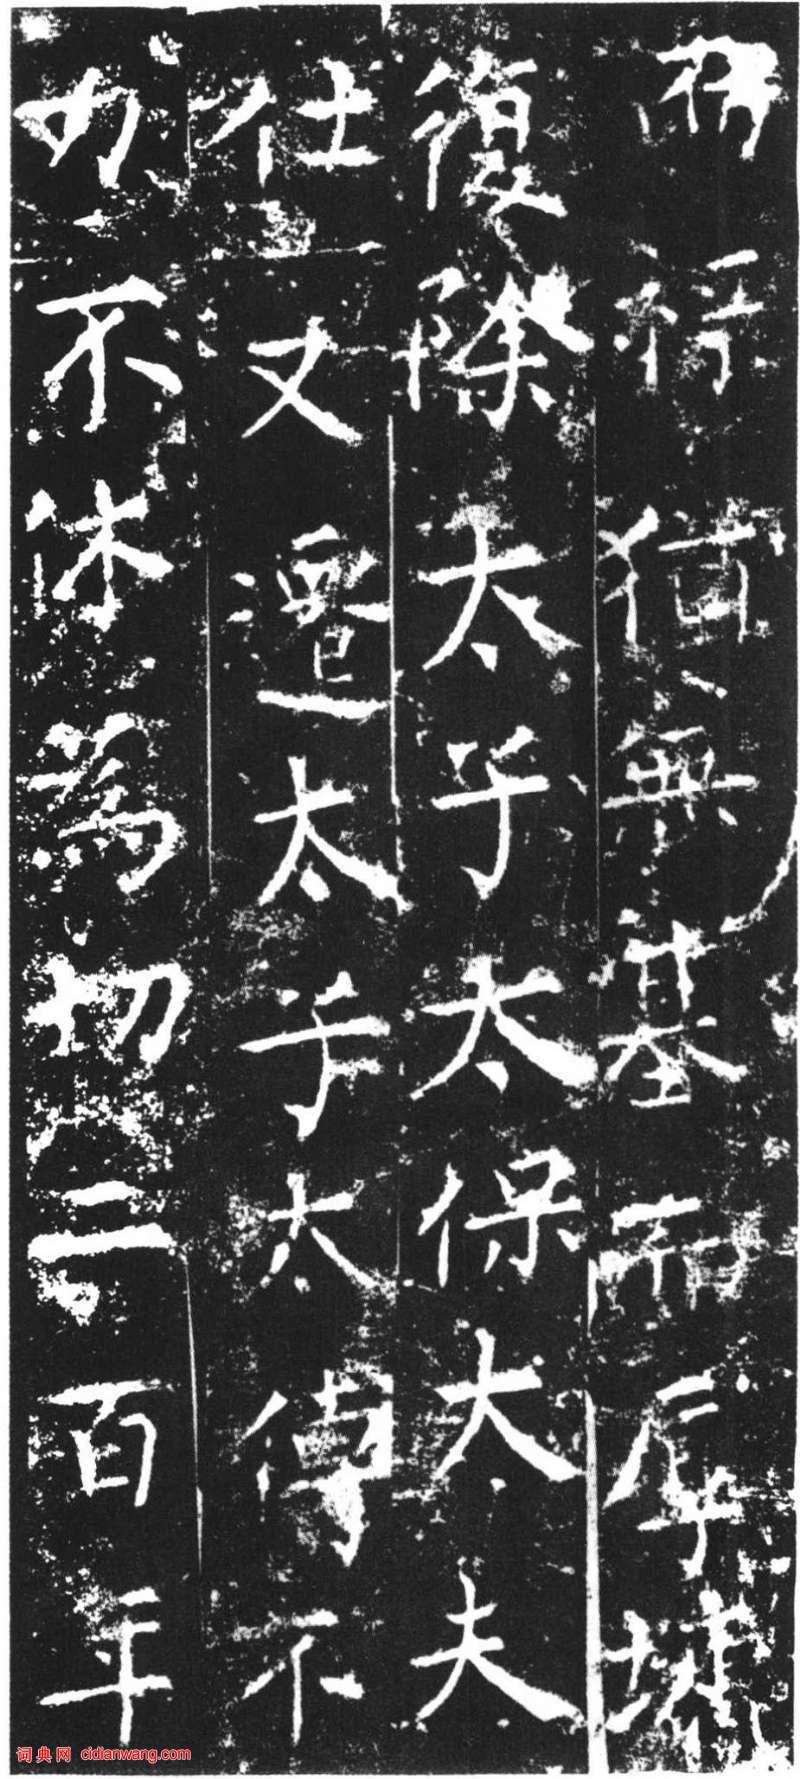 而行猶無基而厚墉
復除太子太保太夫
仕又遷太子太傅不
力不休為切二百年
词典网 cidianwang.com